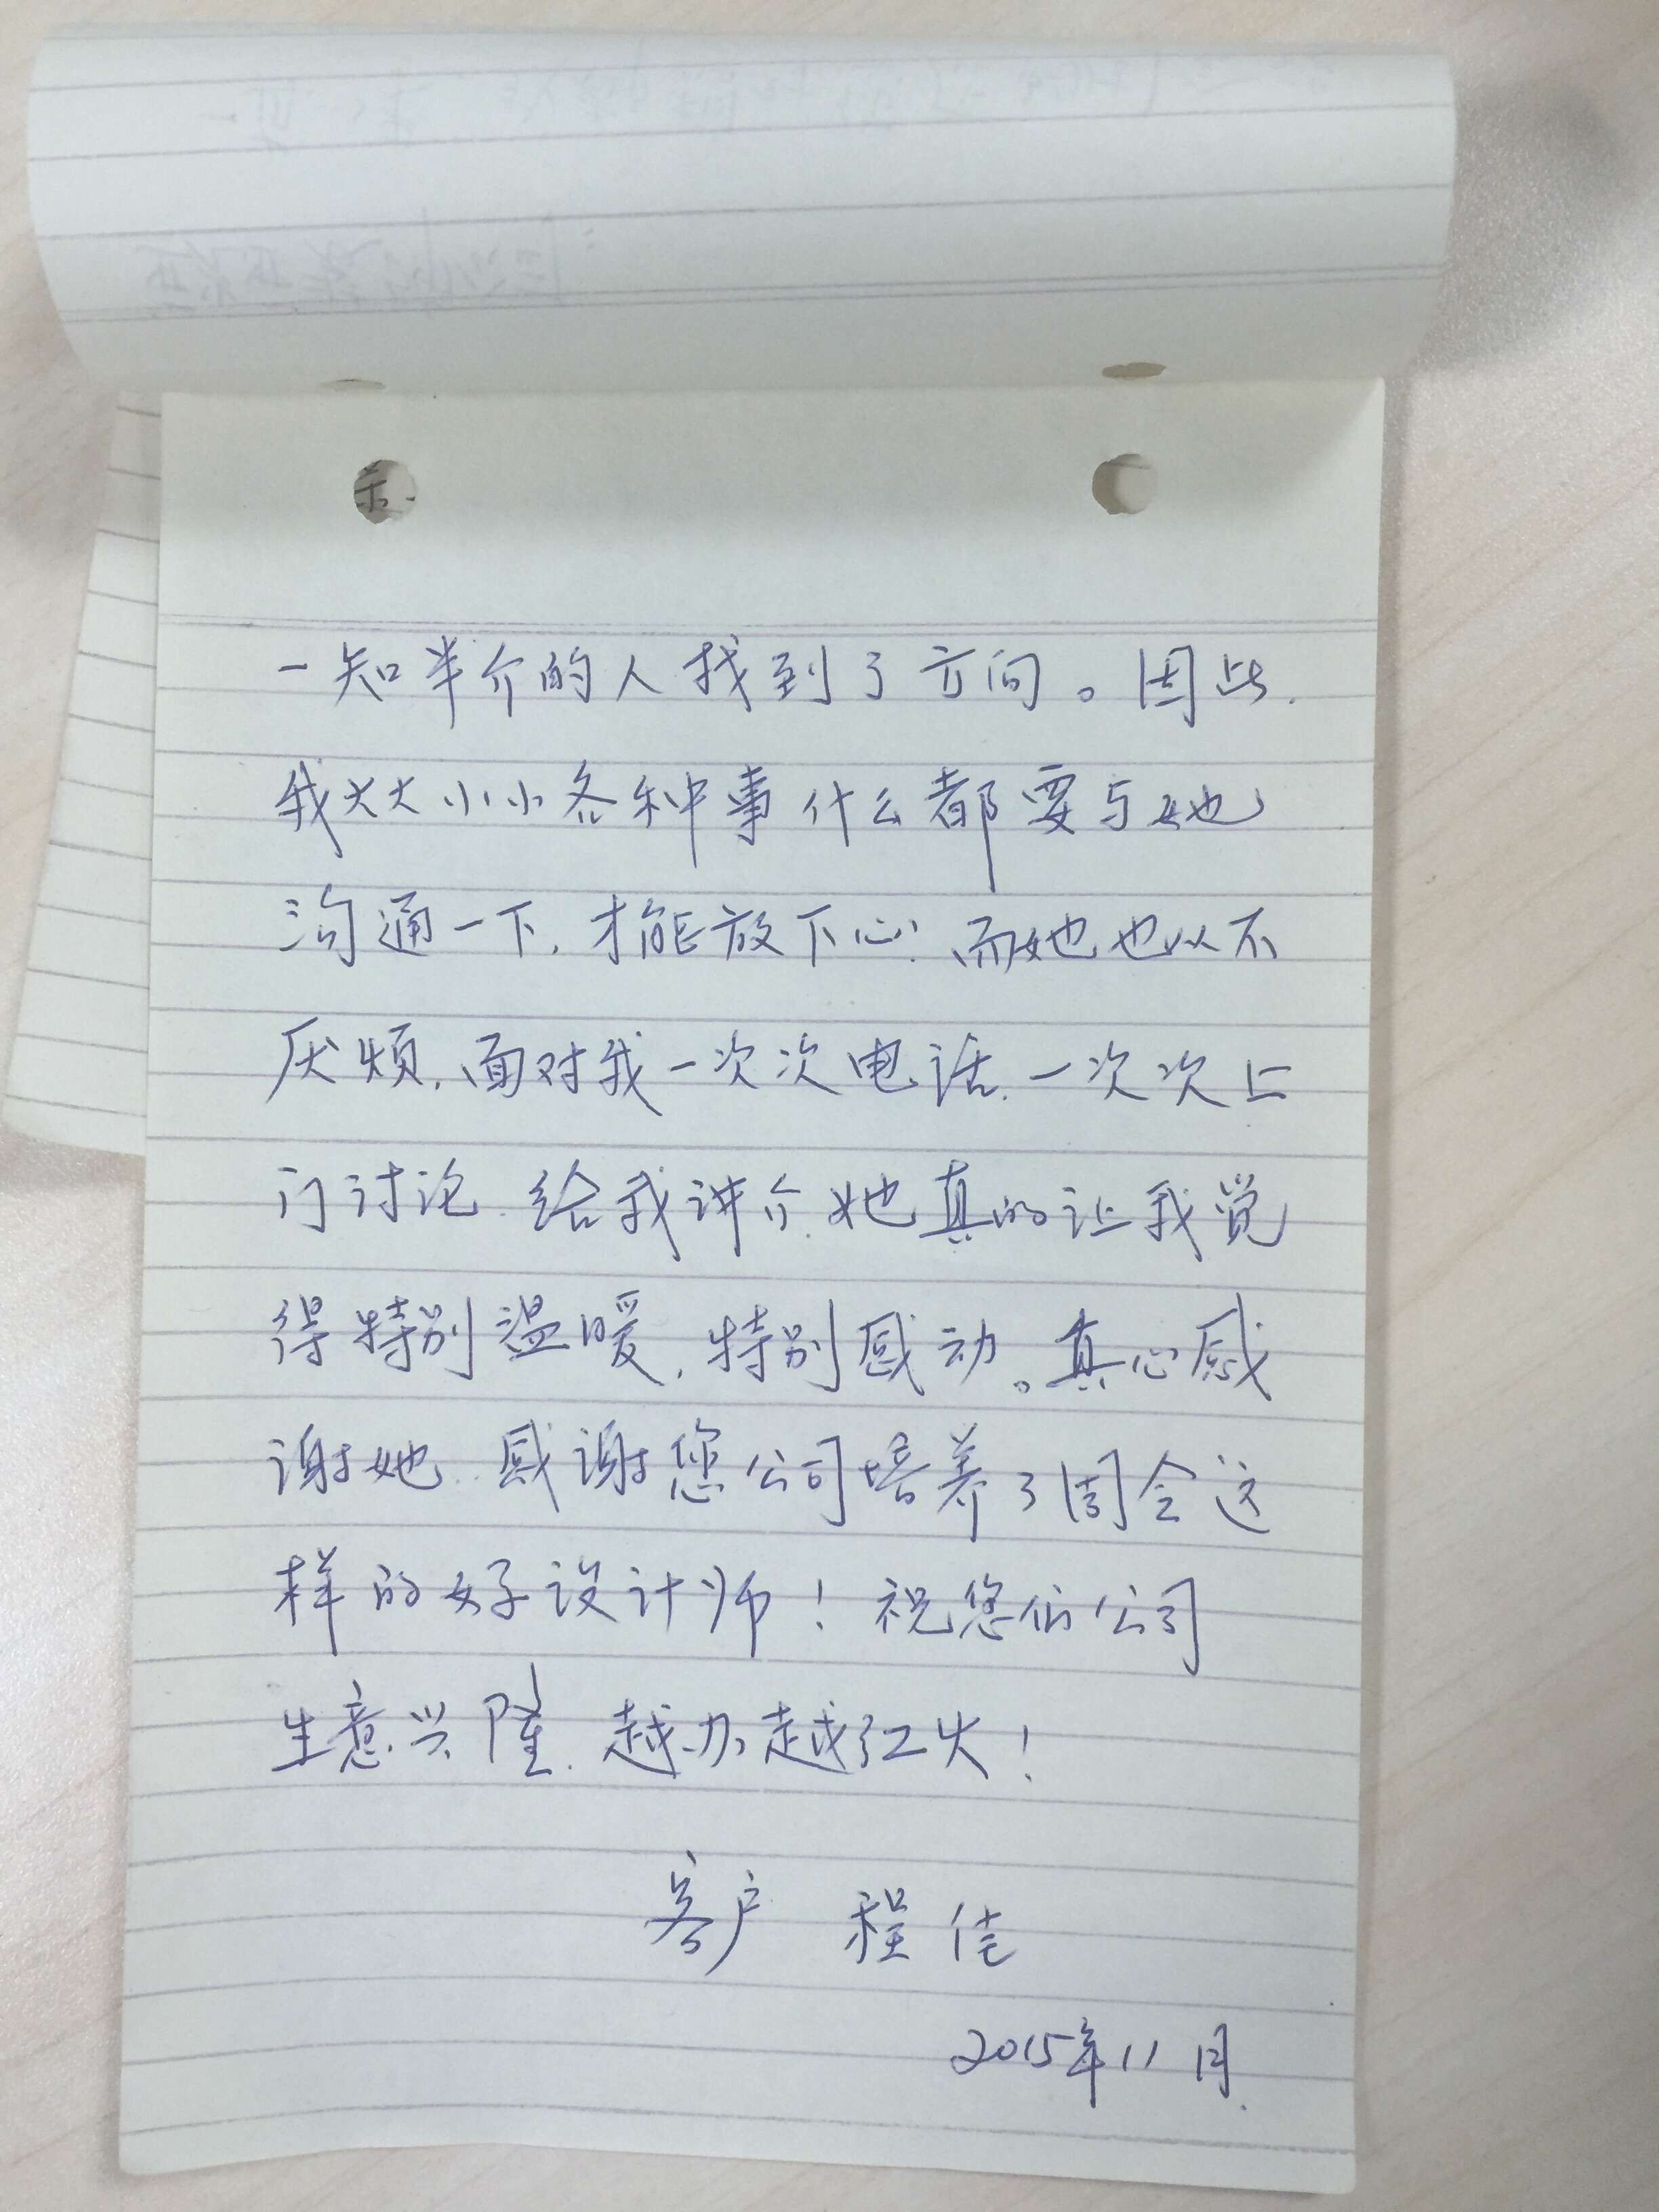 一知半介的人找到了方向。因此.
我大大小小各种事什么都要与她
沟通一下,才能放下心.而她也从不
厌烦.面对我一次次电话.一次次上
门讨论.给我讲介.她真的让我觉
得特别温暖,特别感动。真心感
谢她.感谢您公司培养了周会这
样的好设计师!祝您们公司
生意兴隆.越办越红火!
客户 程佳
2015年11月.